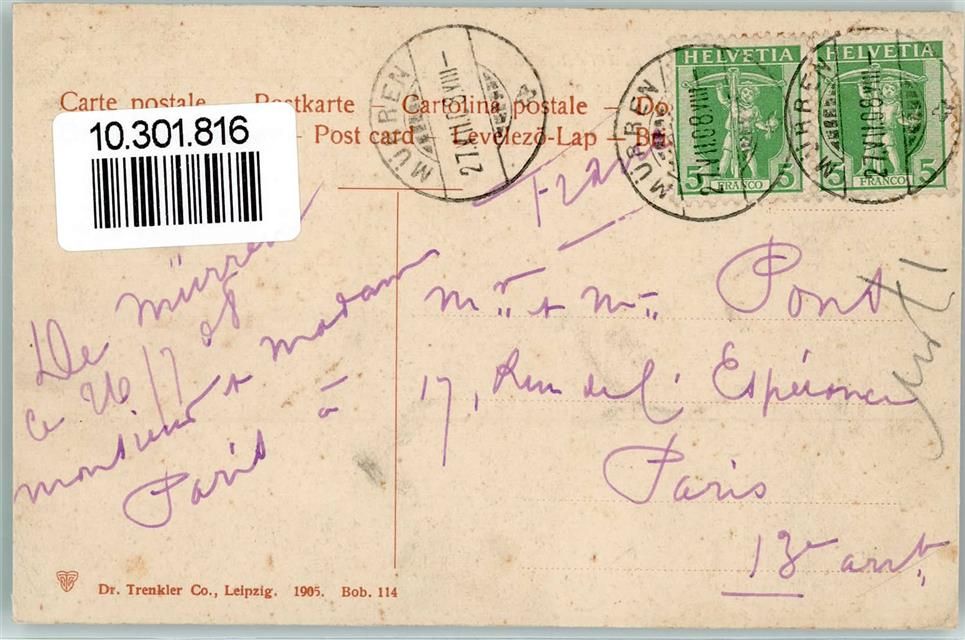 Carte postale — Postkarte — Cartolina postale — Do
— Post card — Levelező-Lap — B
10.301.816
MÜRREN
27.VII.08.VIII—
HELVETIA
5 FRANCO 5
MÜRREN
27.VII.08.VIII—
HELVETIA
5 FRANCO 5
MÜRREN
27.VII.08.VIII—
De Mürren
ce 26/7 08
monsieur et madam
à
Paris
Mr et Mme Pont
17, Rue de l'Espérance
Paris
13e arrt
Dr. Trenkler Co., Leipzig. 1905. Bob. 114